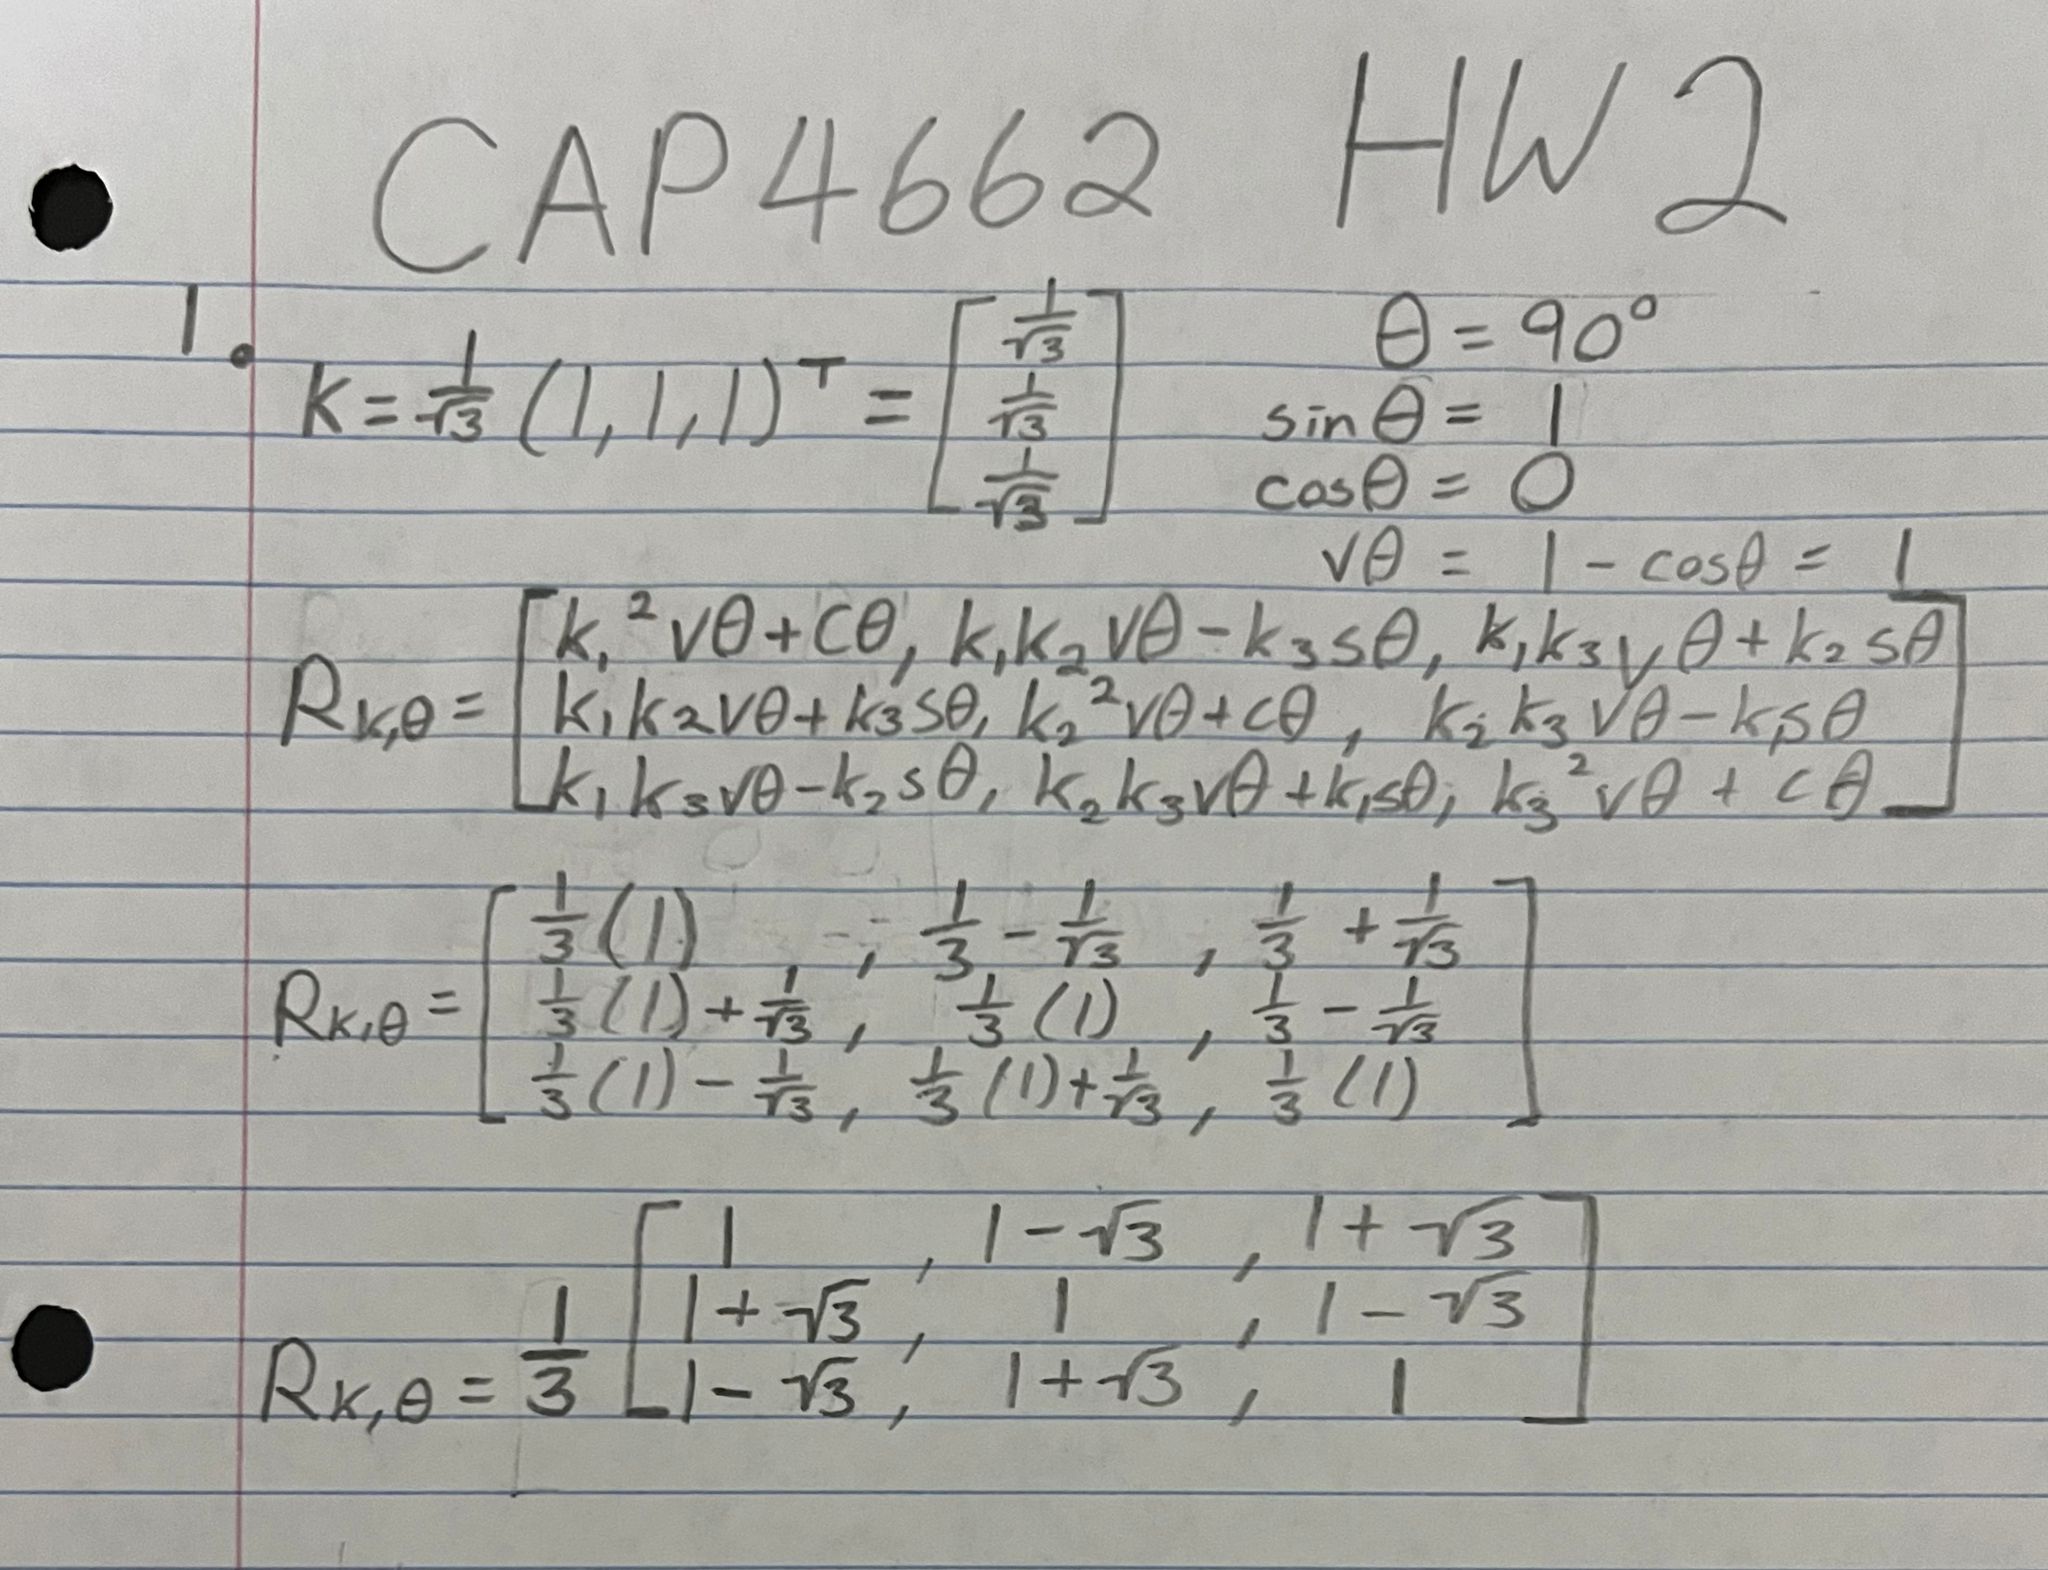 CAP4662 HW2
1.
K = 1/√3 (1,1,1)ᵀ = [1/√3 1/√3 1/√3]
θ = 90°
sinθ = 1
cosθ = 0
vθ = 1 - cosθ = 1
k₁²vθ+cθ, k₁k₂vθ-k₃sθ, k₁k₃vθ+k₂sθ
R_k,θ = k₁k₂vθ+k₃sθ, k₂²vθ+cθ, k₂k₃vθ-k₁sθ
k₁k₃vθ-k₂sθ, k₂k₃vθ+k₁sθ, k₃²vθ+cθ
1/3(1), 1/3 - 1/√3, 1/3 + 1/√3
R_k,θ = 1/3(1)+1/√3, 1/3(1), 1/3 - 1/√3
1/3(1)-1/√3, 1/3(1)+1/√3, 1/3(1)
1, 1-√3, 1+√3
1+√3, 1, 1-√3
R_k,θ = 1/3 1-√3, 1+√3, 1